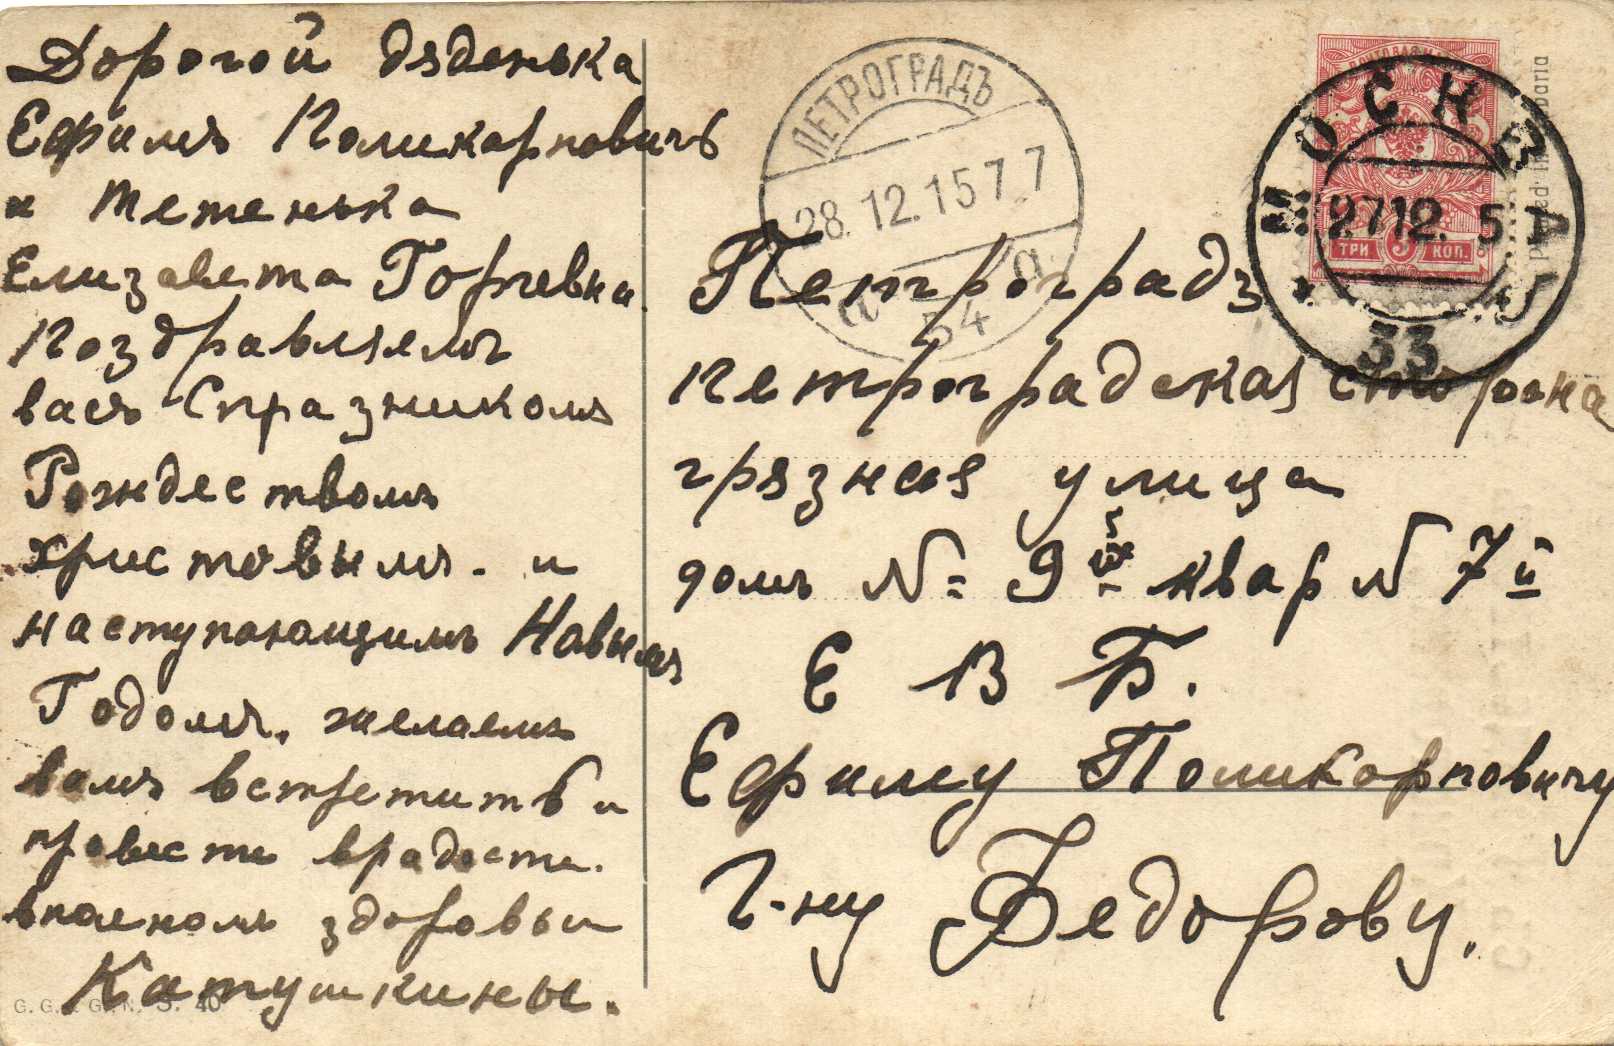 Дорогой дяденька
Ефимъ Поликарповичъ
и тетенька
Елизавета Горгевна.
Поздравляемъ
васъ Спразникомъ
Рождествомъ
христовымъ. и
наступающимъ Новымъ
Годомъ. желаемъ
вамъ встретить и
провести врадости.
вполномъ здоровьи
Катушкины.
G. G. & G. N. S. 40
ПЕТРОГРАДЪ
28.12.15 7. 7
а а
54
МОСКВА
27 12. 5
33
ТРИ 3 КОП.
Петроградъ
петроградская сторона
грязная улица
домъ № 9 5 квар № 7й
Е В Б.
Ефиму Поликорповичу
Г-ну Федорову.